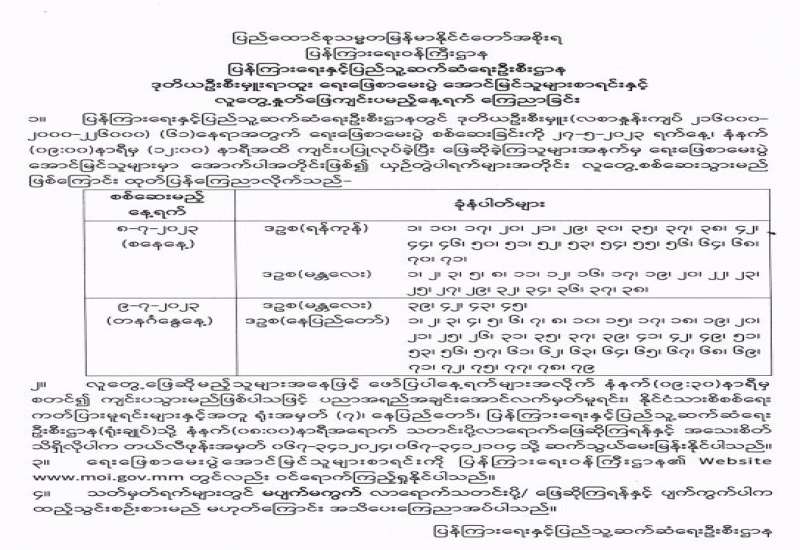 ပြည်ထောင်စုသမ္မတမြန်မာနိုင်ငံတော်အစိုးရ
ပြန်ကြားရေးဝန်ကြီးဌာန
ပြန်ကြားရေးနှင့်ပြည်သူ့ဆက်ဆံရေးဦးစီးဌာန
ဒုတိယဦးစီးမှူးရာထူး ရေးဖြေစာမေးပွဲ အောင်မြင်သူများစာရင်းနှင့်
လူတွေ့နှုတ်ဖြေကျင်းပမည့်နေ့ရက် ကြေညာခြင်း
၁။ ပြန်ကြားရေးနှင့်ပြည်သူ့ဆက်ဆံရေးဦးစီးဌာနတွင် ဒုတိယဦးစီးမှူး(လစာနှုန်းကျပ် ၂၁၆၀၀၀-
၂၀၀၀-၂၂၆၀၀၀) (၆၁)နေရာအတွက် ရေးဖြေစာမေးပွဲ စစ်ဆေးခြင်းကို ၂၇-၅-၂၀၂၃ ရက်နေ့၊ နံနက်
(၀၉:၀၀)နာရီမှ (၁၂:၀၀) နာရီအထိ ကျင်းပပြုလုပ်ခဲ့ပြီး ဖြေဆိုခဲ့ကြသူများအနက်မှ ရေးဖြေစာမေးပွဲ
အောင်မြင်သူများမှာ အောက်ပါအတိုင်းဖြစ်၍ ယှဉ်တွဲပါရက်များအတိုင်း လူတွေ့စစ်ဆေးသွားမည်
ဖြစ်ကြောင်း ထုတ်ပြန်ကြေညာလိုက်သည်-
စစ်ဆေးမည့် နေ့ရက် ခုံနံပါတ်များ
၈-၇-၂၀၂၃ ဒဥစ(ရန်ကုန်) ၁၊ ၁၀၊ ၁၇၊ ၂၀၊ ၂၁၊ ၂၉၊ ၃၀၊ ၃၅၊ ၃၇၊ ၃၈၊ ၄၂၊
(စနေနေ့) ၄၄၊ ၄၆၊ ၅၀၊ ၅၁၊ ၅၂၊ ၅၃၊ ၅၄၊ ၅၅၊ ၅၆၊ ၆၄၊ ၆၈၊
၇၀၊ ၇၁၊
ဒဥစ(မန္တလေး) ၁၊ ၂၊ ၃၊ ၅၊ ၈၊ ၁၁၊ ၁၂၊ ၁၆၊ ၁၇၊ ၁၉၊ ၂၀၊ ၂၂၊ ၂၃၊
၂၅၊ ၂၇၊ ၂၉၊ ၃၂၊ ၃၄၊ ၃၆၊ ၃၇၊ ၃၈၊
၉-၇-၂၀၂၃ ဒဥစ(မန္တလေး) ၃၉၊ ၄၂၊ ၄၃၊ ၄၅၊
(တနင်္ဂနွေနေ့) ဒဥစ(နေပြည်တော်) ၁၊ ၂၊ ၃၊ ၄၊ ၅၊ ၆၊ ၇၊ ၈၊ ၁၀၊ ၁၅၊ ၁၇၊ ၁၈၊ ၁၉၊ ၂၀၊
၂၁၊ ၂၅၊ ၂၆၊ ၃၁၊ ၃၅၊ ၃၇၊ ၃၉၊ ၄၁၊ ၄၂၊ ၄၉၊ ၅၁၊
၅၃၊ ၅၆၊ ၅၇၊ ၆၁၊ ၆၂၊ ၆၃၊ ၆၄၊ ၆၅၊ ၆၇၊ ၆၈၊ ၆၉၊
၇၁၊ ၇၂၊ ၇၅၊ ၇၇၊ ၇၈၊ ၇၉
၂။ လူတွေ့ဖြေဆိုမည့်သူများအနေဖြင့် ဖော်ပြပါနေ့ရက်များအလိုက် နံနက်(၀၉:၃၀)နာရီမှ
စတင်၍ ကျင်းပသွားမည်ဖြစ်ပါသဖြင့် ပညာအရည်အချင်းအောင်လက်မှတ်မူရင်း၊ နိုင်ငံသားစိစစ်ရေး
ကတ်ပြားမူရင်းများနှင့်အတူ ရုံးအမှတ် (၇)၊ နေပြည်တော်၊ ပြန်ကြားရေးနှင့်ပြည်သူ့ဆက်ဆံရေး
ဦးစီးဌာန(ရုံးချုပ်)သို့ နံနက်(၀၈:၀၀)နာရီအရောက် သတင်းပို့လာရောက်ဖြေဆိုကြရန်နှင့် အသေးစိတ်
သိရှိလိုပါက တယ်လီဖုန်းအမှတ် ၀၆၇-၃၄၁၂၀၂၄၊ ၀၆၇-၃၄၁၂၁၀၄ သို့ ဆက်သွယ်မေးမြန်းနိုင်ပါသည်။
၃။ ရေးဖြေစာမေးပွဲအောင်မြင်သူများစာရင်းကို ပြန်ကြားရေးဝန်ကြီးဌာန၏ Website
www.moi.gov.mm တွင်လည်း ဝင်ရောက်ကြည့်ရှုနိုင်ပါသည်။
၄။ သတ်မှတ်ရက်များတွင် မပျက်မကွက် လာရောက်သတင်းပို့/ ဖြေဆိုကြရန်နှင့် ပျက်ကွက်ပါက
ထည့်သွင်းစဉ်းစားမည် မဟုတ်ကြောင်း အသိပေးကြေညာအပ်ပါသည်။
ပြန်ကြားရေးနှင့်ပြည်သူ့ဆက်ဆံရေးဦးစီးဌာန